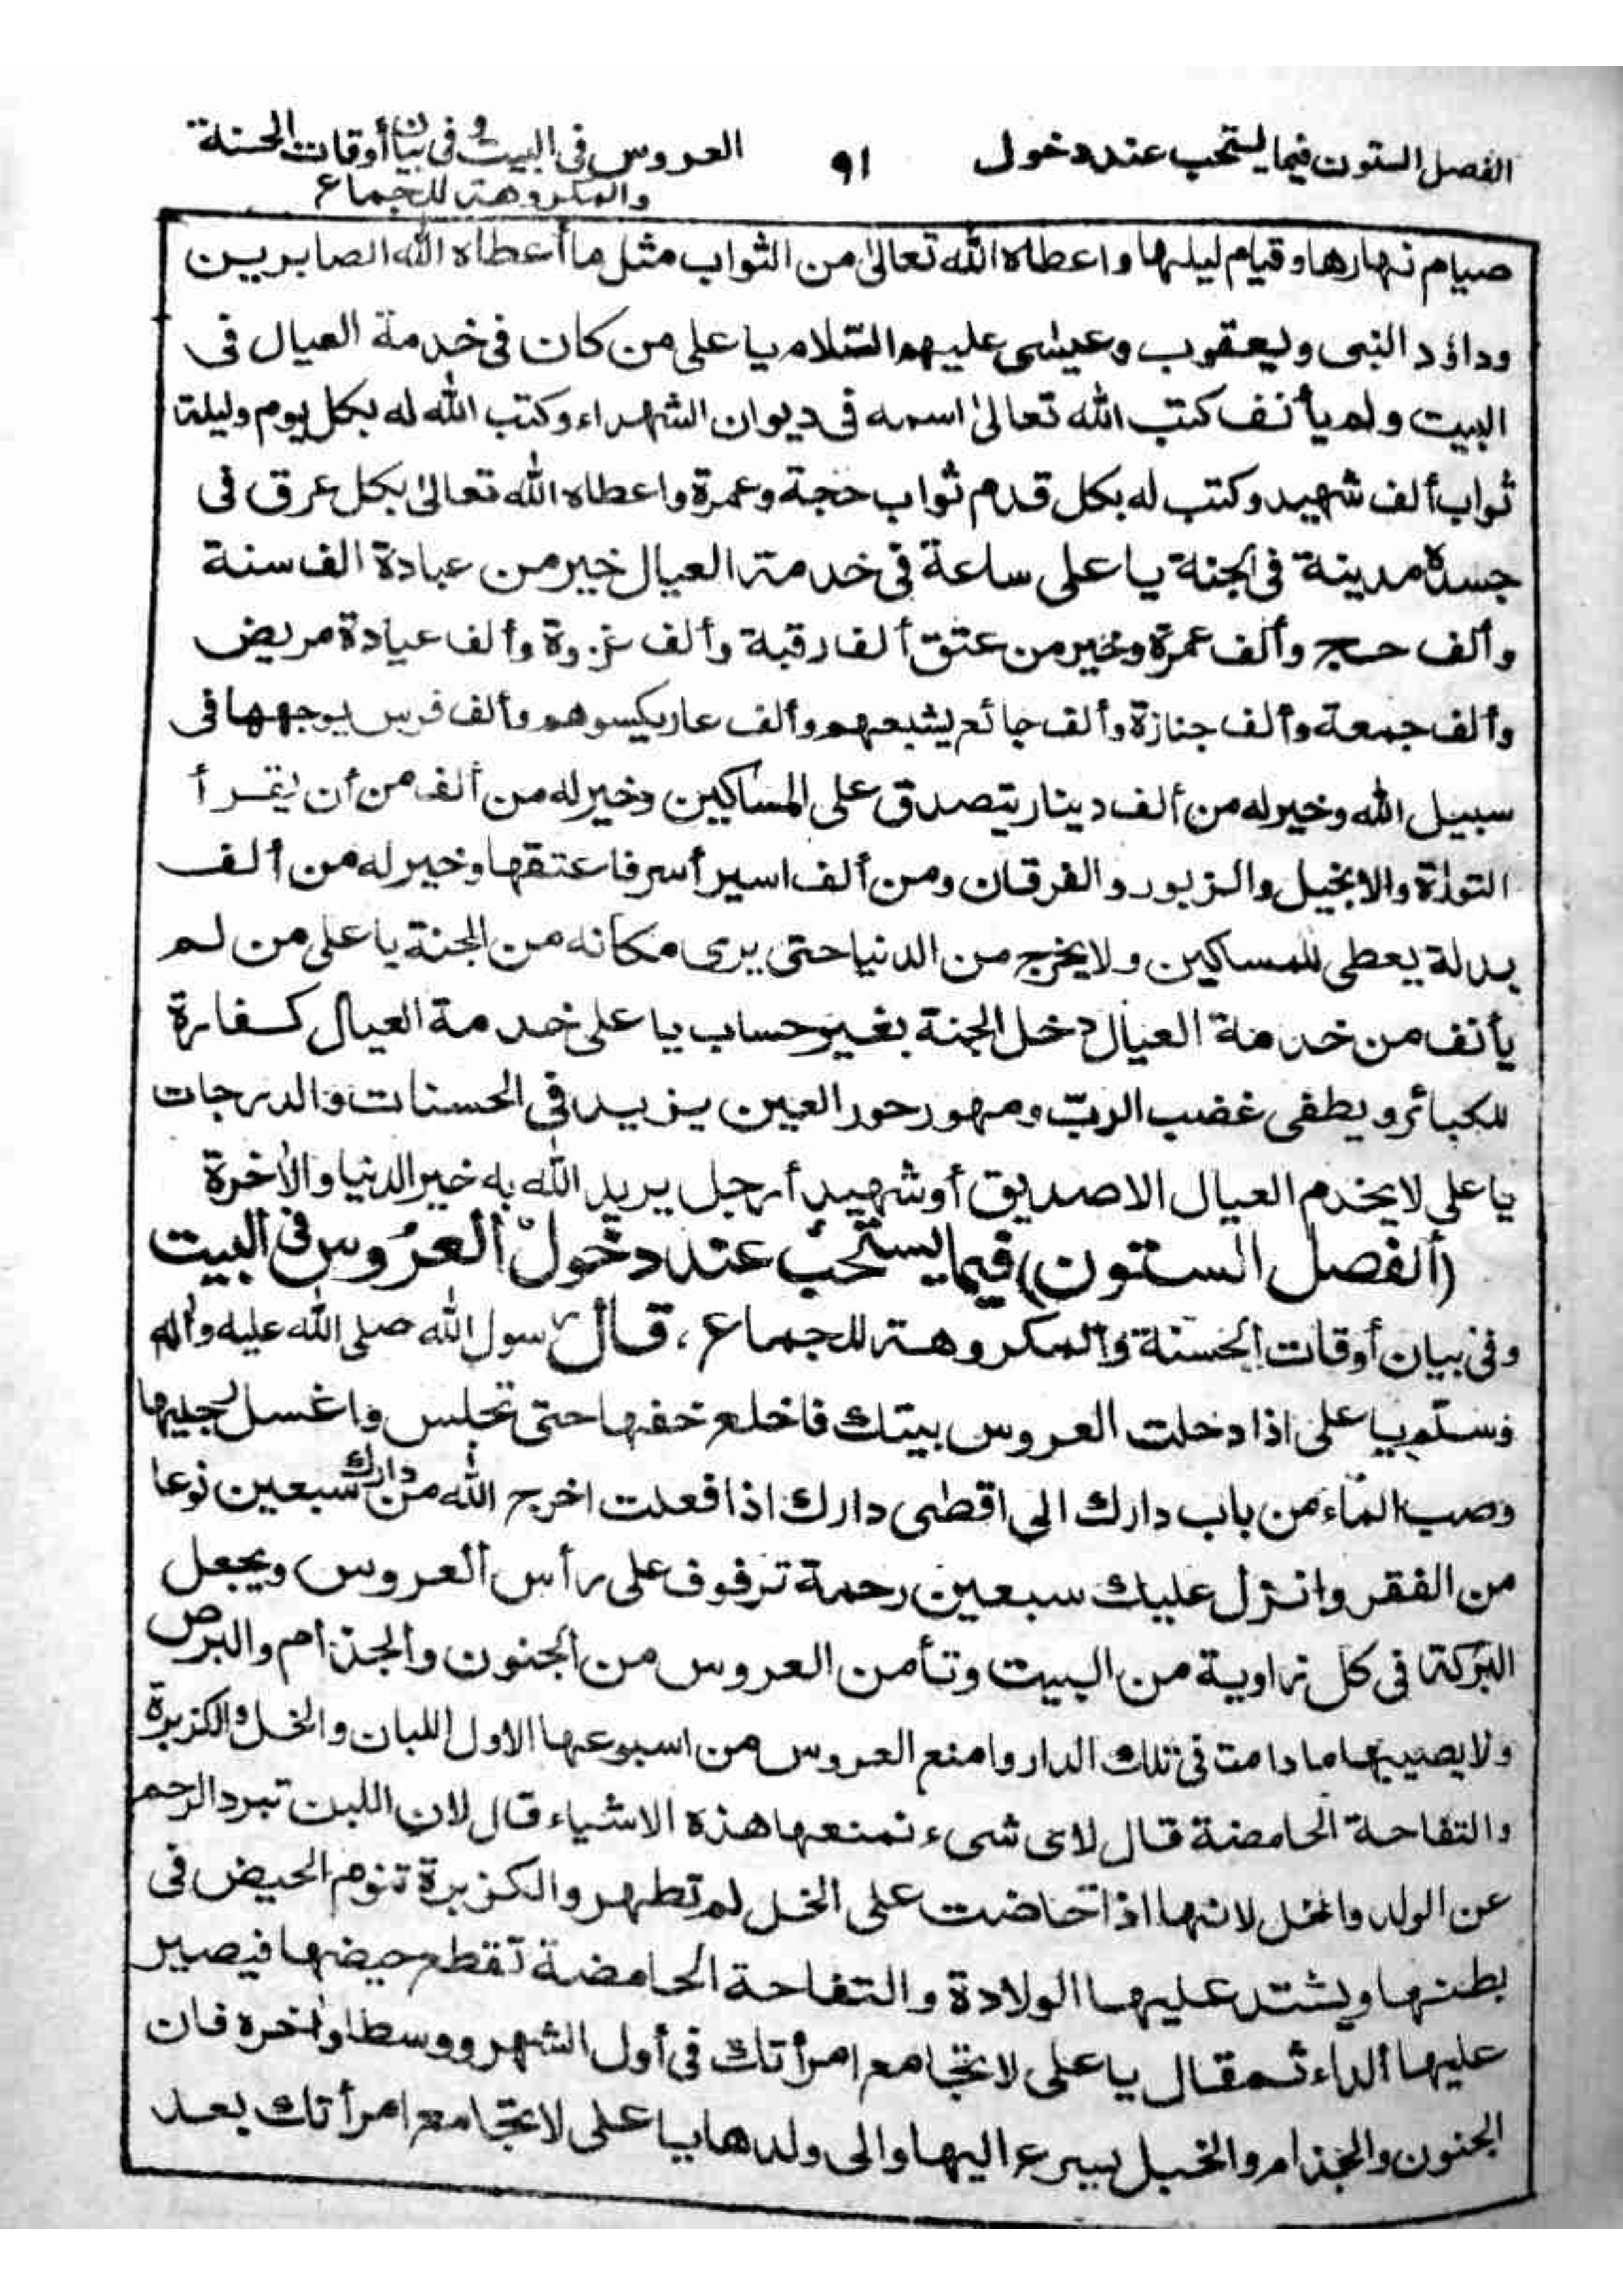 الفصل الستون فيما يستحب عند دخول ٩١ العروس فى البيت وفى بيان أوقات الحسنة
والمكروهة للجماع
صيام نهارها وقيام ليلها واعطاه الله تعالىٰ من الثواب مثل ما أعطاه الله الصابرين
وداؤد النبى ويعقوب وعيسٰى عليهم السّلام يا على من كان فى خدمة العيال فى
البيت ولم يأنف كتب الله تعالىٰ اسمه فى ديوان الشهداء وكتب الله له بكل يوم وليلة
ثواب ألف شهيد وكتب له بكل قدم ثواب حجة وعمرة واعطاه الله تعالىٰ بكل عرق فى
جسده مدينة فى الجنة يا على ساعة فى خدمة العيال خير من عبادة الف سنة
وألف حج وألف عمرة وخير من عتق ألف رقبة وألف غزوة وألف عيادة مريض
وألف جمعة وألف جنازة وألف جائع يشبعهم وألف عار يكسوهم وألف فرس يوجهها فى
سبيل الله وخير له من ألف دينار يتصدق على المساكين وخير له من ألف من أن يقرأ
التوراة والانجيل والزبور والفرقان ومن ألف اسير أسر فاعتقها وخير له من ألف
بدلة يعطى للمساكين ولا يخرج من الدنيا حتى يرى مكانه من الجنة يا على من لم
يأنف من خدمة العيال دخل الجنة بغير حساب يا على خدمة العيال كفارة
للكبائر ويطفى غضب الربّ ومهور حور العين يزيد فى الحسنات والدرجات
يا على لا يخدم العيال الا صديق أو شهيد أو رجل يريد الله به خير الدنيا والأخرة
(ألفصل الستون) فيما يستحب عند دخول ألعروس فى البيت
وفى بيان أوقات الحسنة والمكروهة للجماع، قال رسول الله صلى الله عليه وأله
وسلّم يا على اذا دخلت العروس بيتك فاخلع خفها حتى تجلس واغسل رجليها
وصب الماء من باب دارك الى اقصٰى دارك اذا فعلت اخرج الله من دارك سبعين نوعا
من الفقر وانزل عليك سبعين رحمة ترفوف على رأس ألعروس ويجعل
البركة فى كل زاوية من البيت وتأمن العروس من الجنون والجذام والبرص
ولا يصيبها ما دامت فى تلك الدار وامنع العروس من اسبوعها الاول اللبان والخل والكزبرة
والتفاحة الحامضة قال لاى شىء نمنعها هذه الاشياء قال لان اللبن تبرد الرحم
عن الولد والخل لانها اذا حاضت على الخل لم تطهر والكزبرة تنوم الحيض فى
بطنها ويشتد عليها الولادة والتفاحة الحامضة تقطع حيضها فيصير
عليها الداء ثم قال يا على لا تجامع امرأتك فى أول الشهر ووسطه وأخره فان
الجنون والجذام والخبل يسرع اليها والى ولدها يا على لا تجامع امرأتك بعد